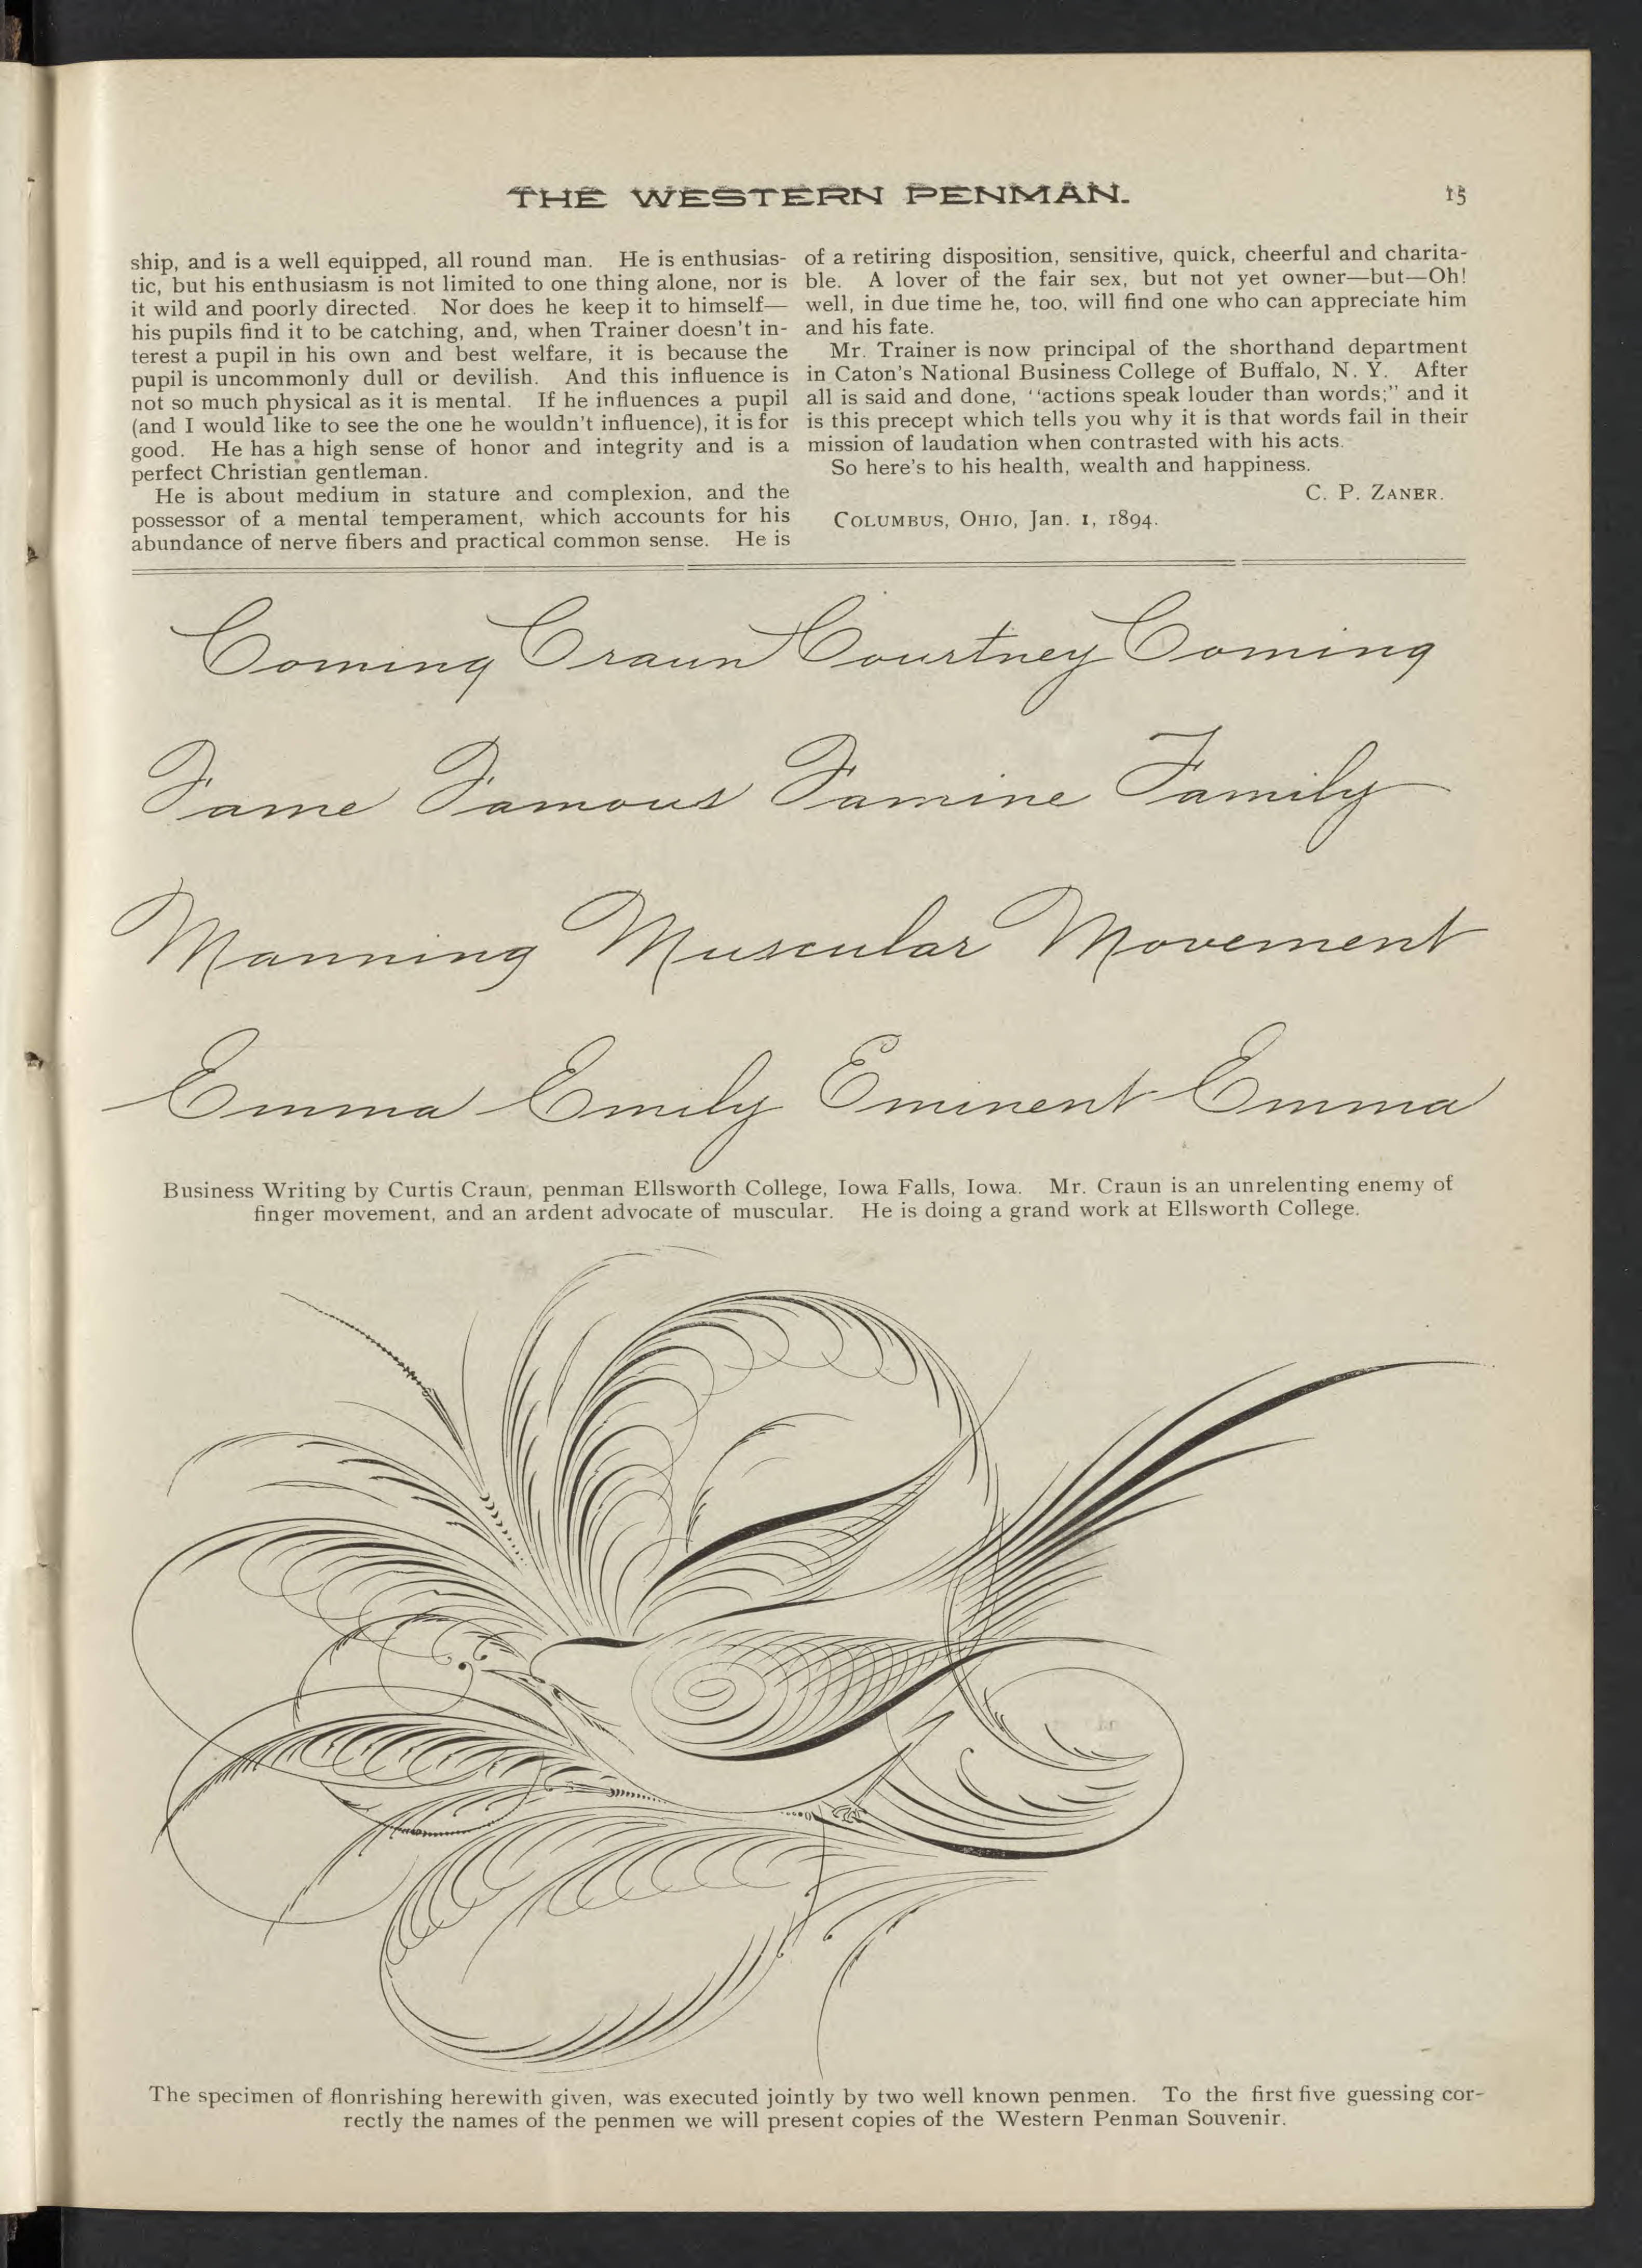 THE WESTERN PENMAN.
15
ship, and is a well equipped, all round man. He is enthusias-
tic, but his enthusiasm is not limited to one thing alone, nor is
it wild and poorly directed. Nor does he keep it to himself—
his pupils find it to be catching, and, when Trainer doesn't in-
terest a pupil in his own and best welfare, it is because the
pupil is uncommonly dull or devilish. And this influence is
not so much physical as it is mental. If he influences a pupil
(and I would like to see the one he wouldn't influence), it is for
good. He has a high sense of honor and integrity and is a
perfect Christian gentleman.
He is about medium in stature and complexion, and the
possessor of a mental temperament, which accounts for his
abundance of nerve fibers and practical common sense. He is
of a retiring disposition, sensitive, quick, cheerful and charita-
ble. A lover of the fair sex, but not yet owner—but—Oh!
well, in due time he, too, will find one who can appreciate him
and his fate.
Mr. Trainer is now principal of the shorthand department
in Caton's National Business College of Buffalo, N. Y. After
all is said and done, "actions speak louder than words;" and it
is this precept which tells you why it is that words fail in their
mission of laudation when contrasted with his acts.
So here's to his health, wealth and happiness.
C. P. ZANER.
COLUMBUS, OHIO, Jan. 1, 1894.
Coming Craun Courtney Coming
Fame Famous Famine Family
Manning Muscular Movement
Emma Emily Eminent Emma
Business Writing by Curtis Craun, penman Ellsworth College, Iowa Falls, Iowa. Mr. Craun is an unrelenting enemy of
finger movement, and an ardent advocate of muscular. He is doing a grand work at Ellsworth College.
The specimen of flonrishing herewith given, was executed jointly by two well known penmen. To the first five guessing cor-
rectly the names of the penmen we will present copies of the Western Penman Souvenir.